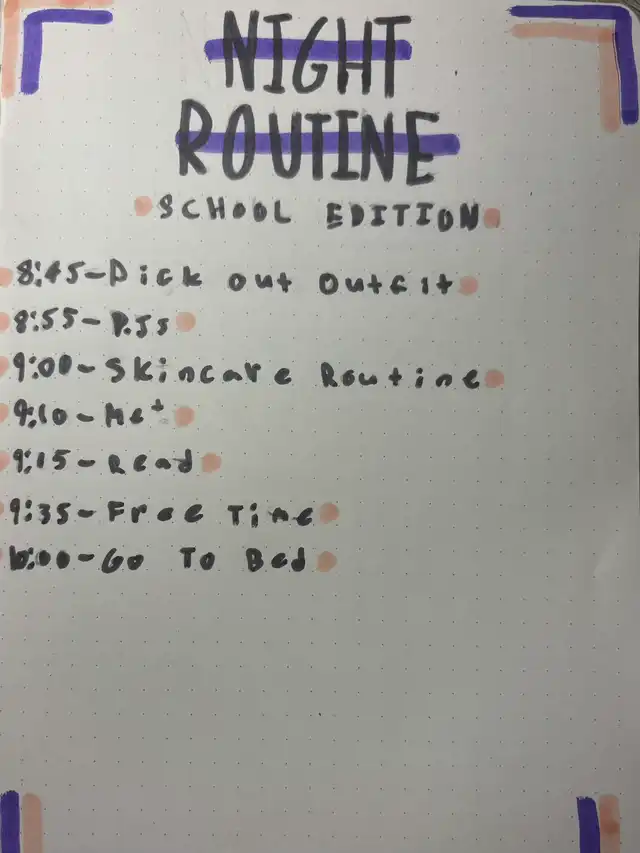 NIGHT
ROUTINE
SCHOOL EDITION
8:45-Pick out outfit
8:55-PJs
9:00-Skincare Routine
9:10-
9:15-Read
9:35-Free Time
10:00-Go To Bed